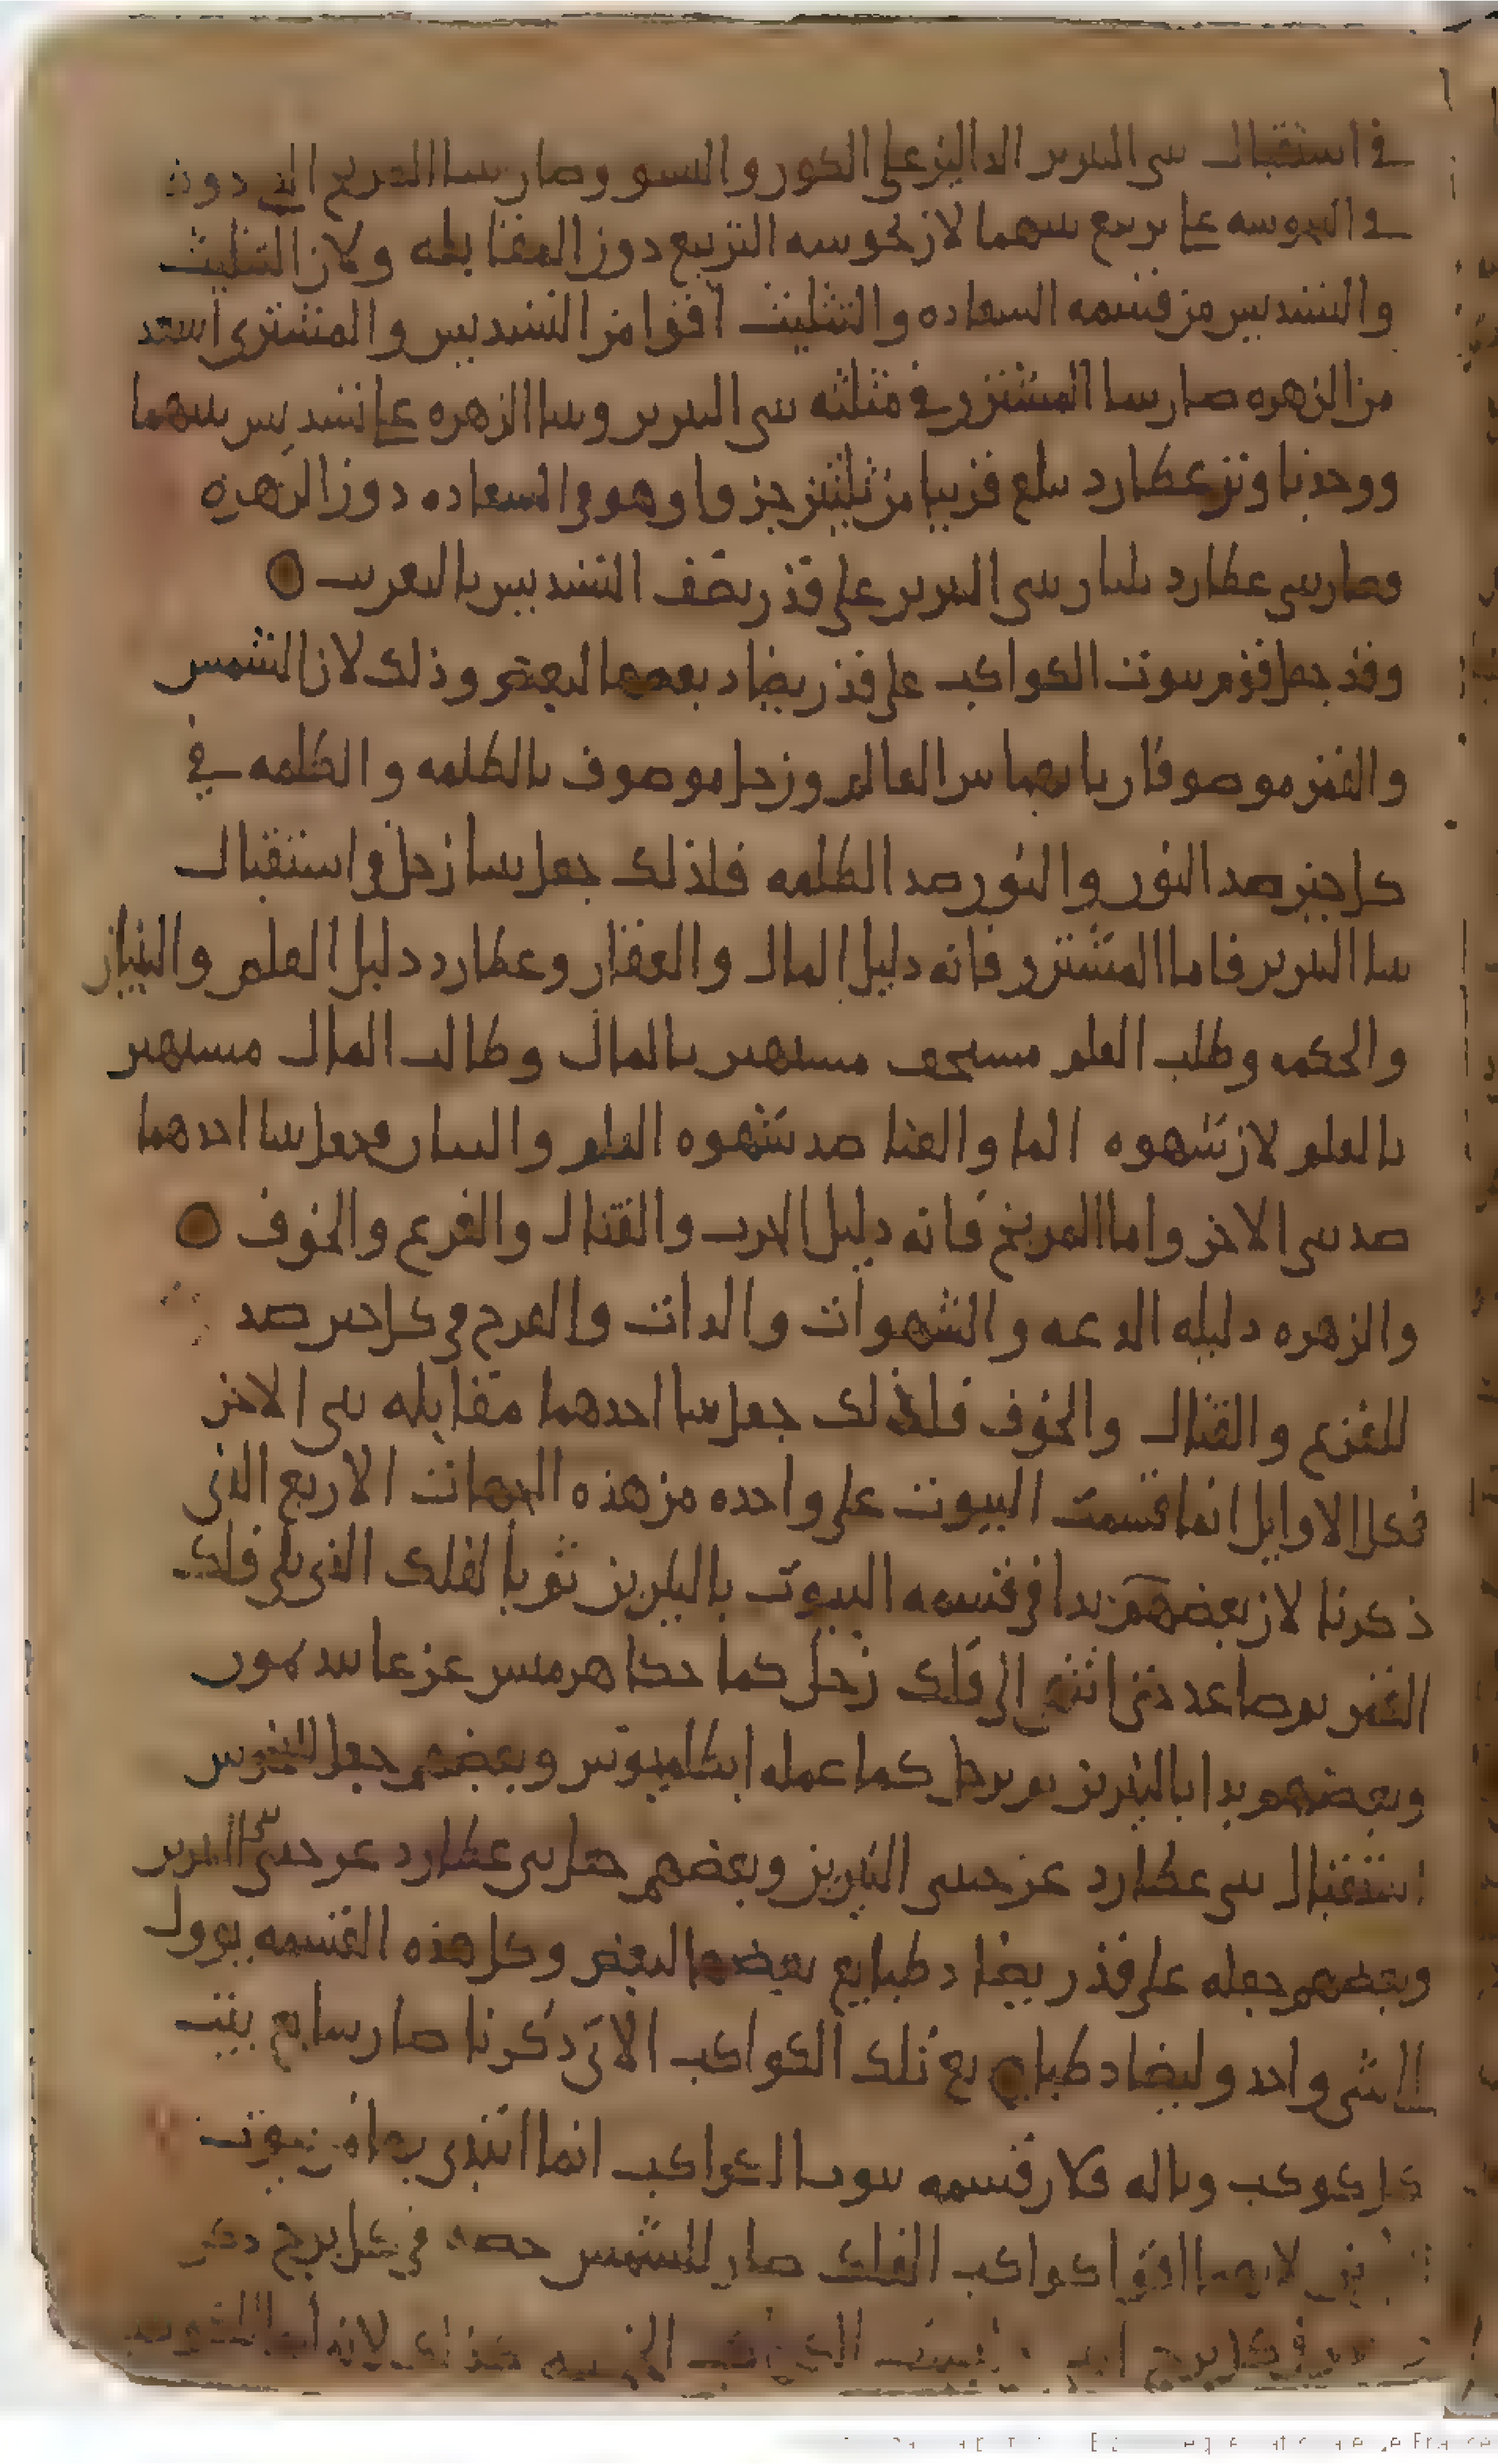 في استقبال بيتي النيرين الدالين على الكون والنشو وصار بيتا المريخ الذي دونه
في النحوسه على تربيع بيتهما لان نحوسه التربيع دون المقابله ولان التثليث
والتسديس من قسمه السعاده والتثليث اقوا من التسديس والمشتري اسعد
من الزهره صار بيتا المشتري في مثلثه بيتي النيرين وبيتا الزهره على تسديس بيتهما
ووجدنا وتر عطارد يبلغ قريبا من ثلثين جزوا وهو في السعاده دون الزهره
فصار بيتي عطارد يليان بيتي النيرين على قدر نصف التسديس بالتقريب
وقد جعل قوم بيوت الكواكب على قدر تضاد بعضها لبعض وذلك لان الشمس
والقمر موصوفان بانهما نيرا العالم وزحل موصوف بالظلمه والظلمه في
كل حين ضد النور والنور ضد الظلمه فلذلك جعل بيتا زحل في استقبال
بيتا النيرين فاما المشتري فانه دليل المال والعقار وعطارد دليل العلم والبيان
والحكمه وطلب العلم مستخف مستهين بالمال وطالب المال مستهين
بالعلم لان شهوه الما والغنا ضد شهوه العلم والبيان فجعل بيتا احدهما
ضد بيتي الاخر واما المريخ فانه دليل الحرب والقتال والفزع والخوف
والزهره دليله الدعه والشهوات والذات والفرح في كل حين ضد
للفزع والقتال والخوف فلذلك جعل بيتا احدهما مقابله بيتي الاخر
فكل الاوايل انما قسمت البيوت على واحده من هذه الجهات الاربع الذي
ذكرنا لان بعضهم بدا في قسمه البيوت بالنيرين ثم بالفلك الذي يلي فلك
القمر ثم صاعد حتى انتهى الى فلك زحل كما حكا هرمس عن
وبعضهم بدا بالنيرين ثم بزحل كما عمله وبعضهم جعل
استقبال بيتي عطارد عن جنبي النيرين وبعضهم جعل بيتي عطارد عن جنبي النيرين
وبعضهم جعله على قدر تضاد طبايع بعضها لبعض وكل هذه القسمه يوول
الى شي واحد ولتضاد طبايع تلك الكواكب الاتي ذكرنا صار سابع بيت
كل كوكب وباله فلان قسمه بيوت الكواكب انما ابتدي به من بيوت
لانهما اقوا كواكب الفلك صار للشمس حصه في كل برج ذكر